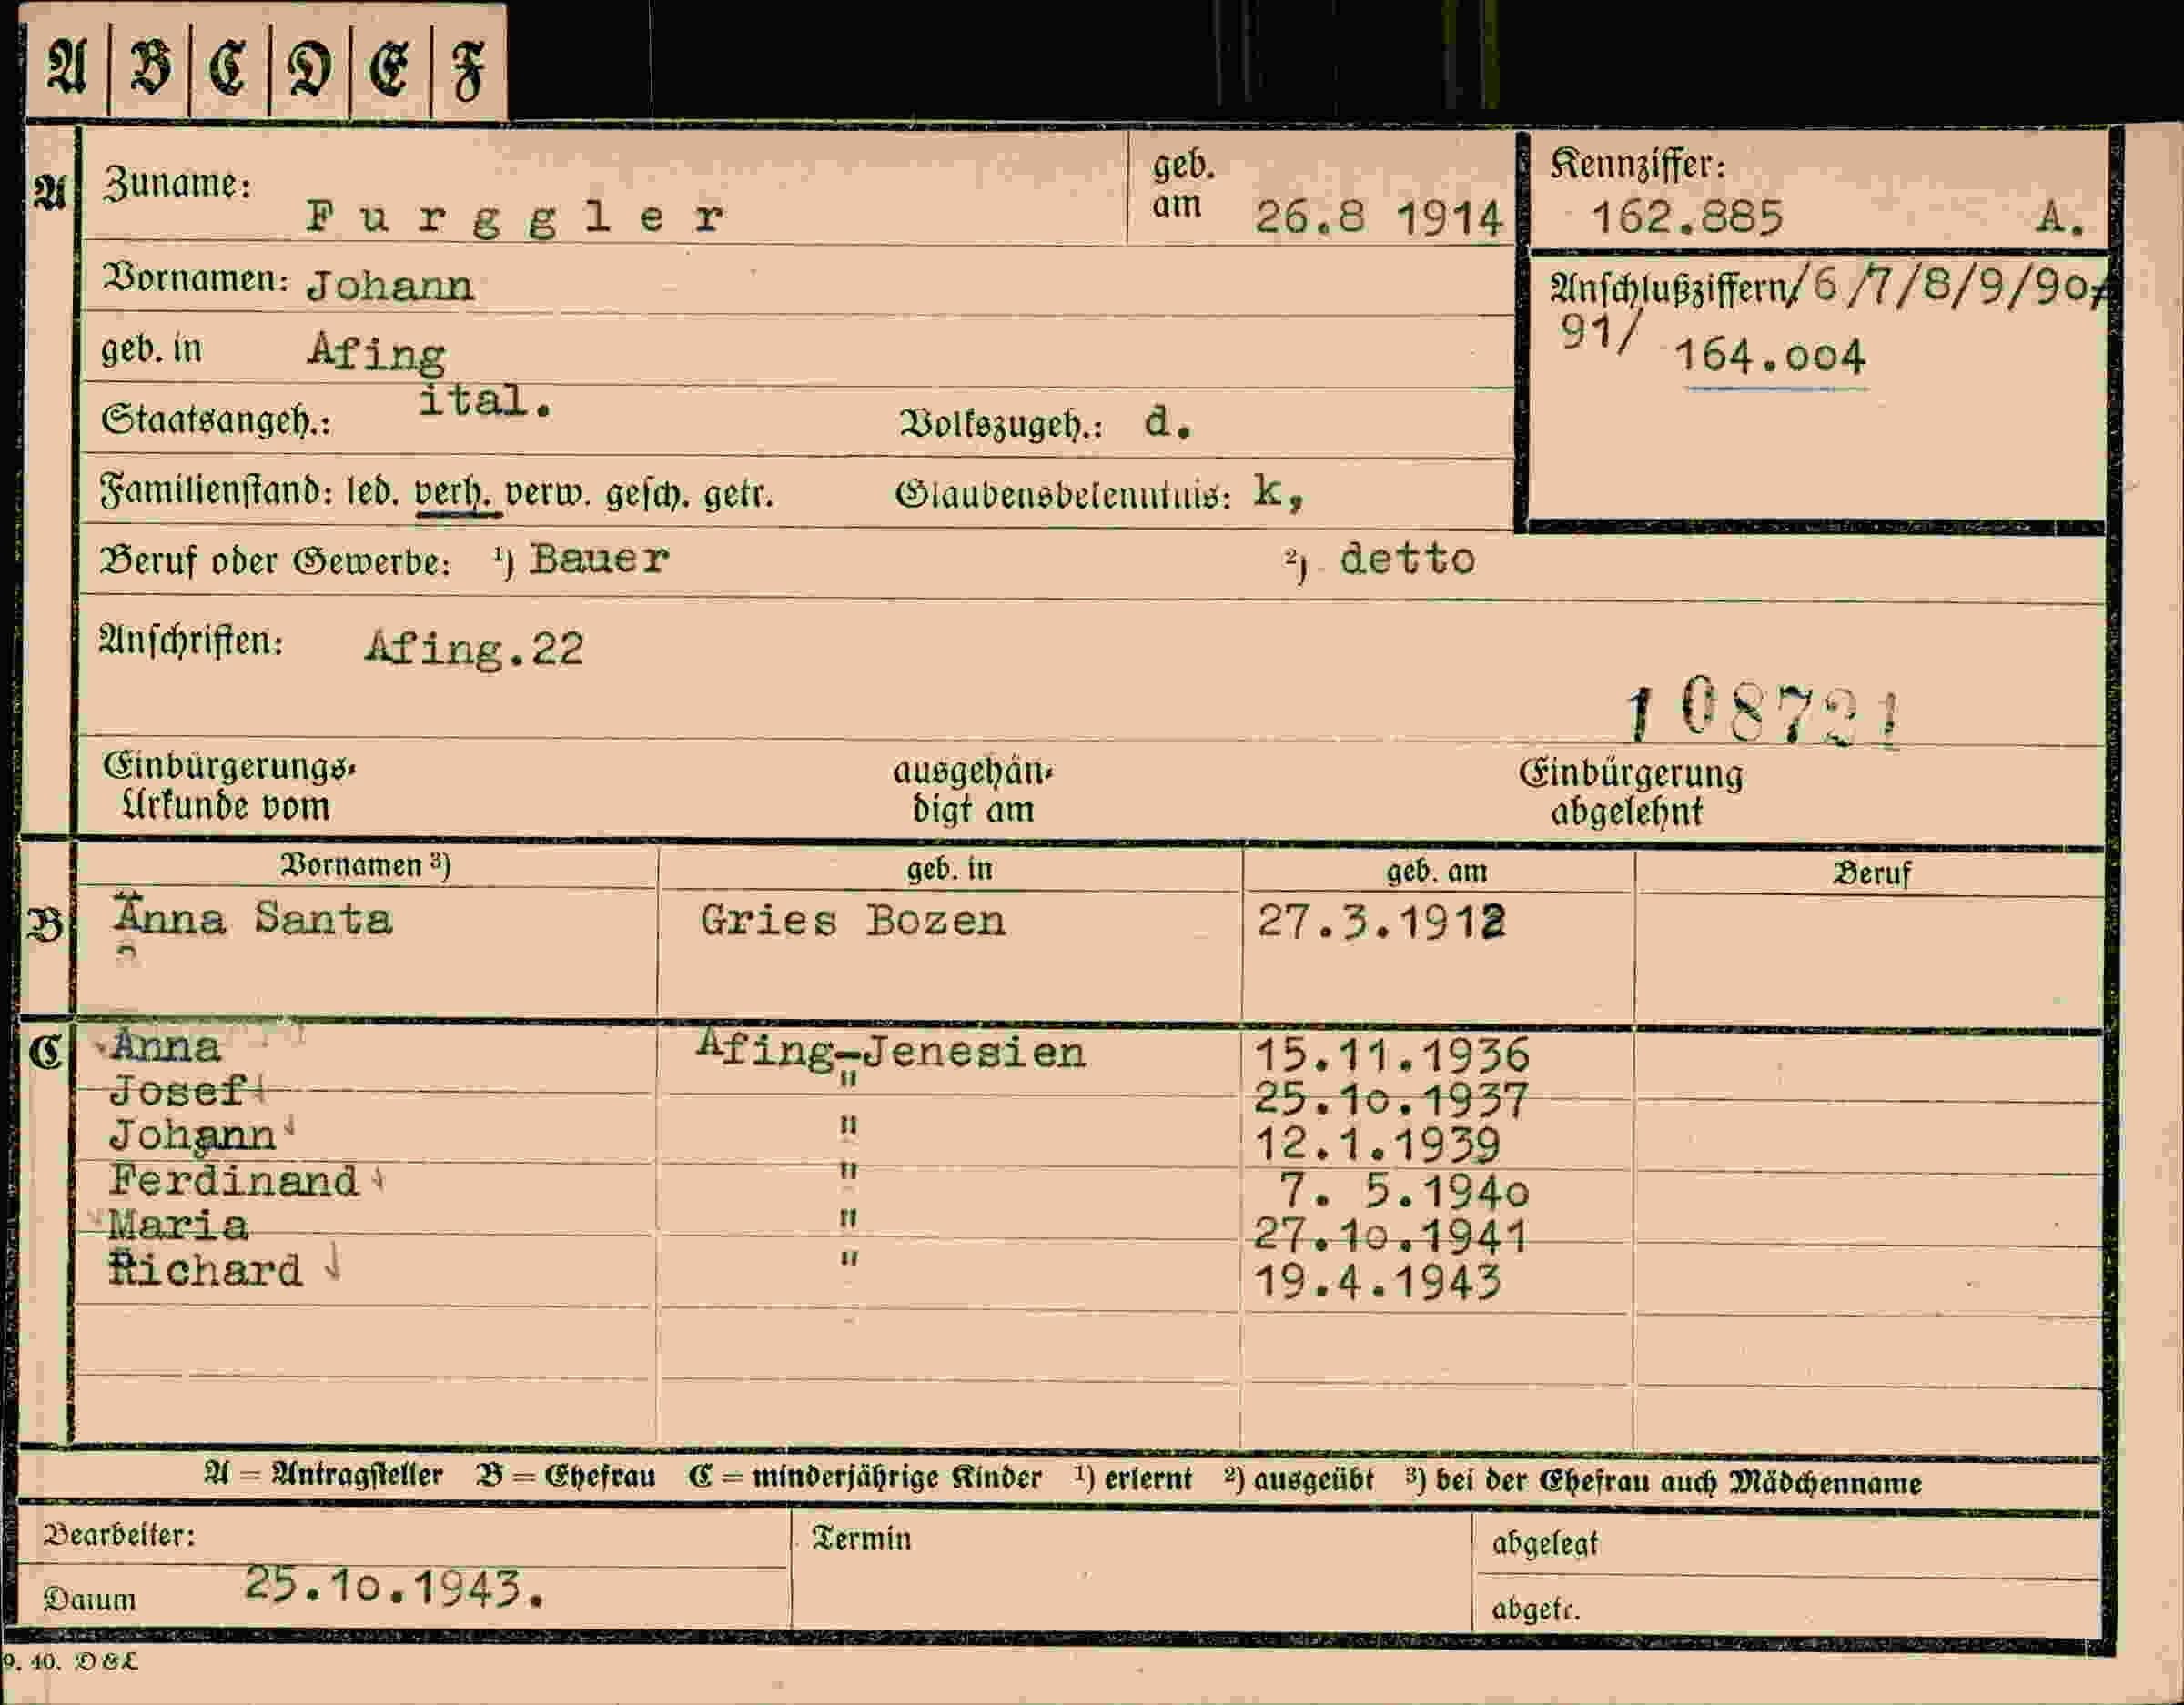 A B C D E F
A Zuname: Furggler geb. am 26.8 1914 Kennziffer: 162.885 A.
Vornamen: Johann Anschlußziffern/6/7/8/9/90/
91/ 164.004
geb. in Afing
Staatsangeh.: ital. Volkszugeh.: d.
Familienstand: led. verh. verw. gesch. getr. Glaubensbekenntnis: k,
Beruf oder Gewerbe: ¹) Bauer ²) detto
Anschriften: Afing.22
108721
Einbürgerungs- Urkunde vom ausgehän- digt am Einbürgerung abgelehnt
Vornamen ³) geb. in geb. am Beruf
B Anna Santa Gries Bozen 27.3.1912
C Anna Afing-Jenesien 15.11.1936
Josef " 25.10.1937
Johann " 12.1.1939
Ferdinand " 7. 5.1940
Maria " 27.10.1941
Richard " 19.4.1943
A = Antragsteller B = Ehefrau C = minderjährige Kinder ¹) erlernt ²) ausgeübt ³) bei der Ehefrau auch Mädchenname
Bearbeiter: Termin abgelegt
Datum 25.10.1943. abgetr.
9. 40. D & L